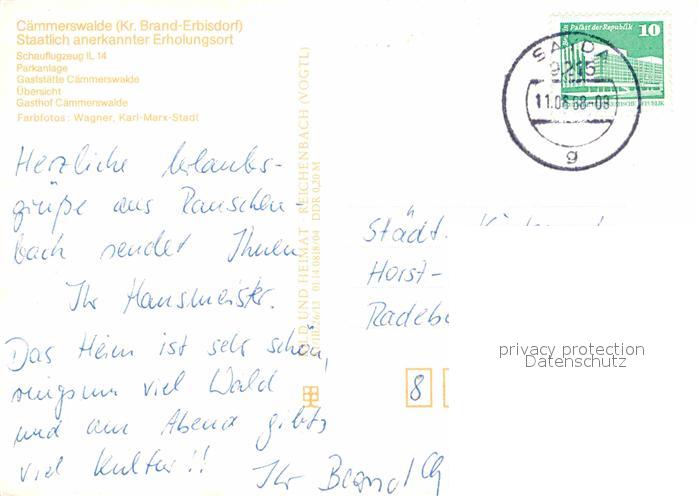 Cämmerswalde (Kr. Brand-Erbisdorf)
Staatlich anerkannter Erholungsort
Schauflugzeug IL 14
Parkanlage
Gaststätte Cämmerswalde
Übersicht
Gasthof Cämmerswalde
Farbfotos: Wagner, Karl-Marx-Stadt
Herzliche Urlaubs-
grüße aus Rauschen-
bach sendet Ihnen
Ihr Hausmeister.
Das Heim ist sehr schön,
ringsum viel Wald
und am Abend gibts
viel Kultur!!
Ihr Bernd
BILD UND HEIMAT REICHENBACH (VOGTL)
01 14 0818/04 DDR 0,20 M
Palast der Republik 10
SAYDA
9215
11.06.88-09
g
Städt.
Horst-
Radeb
8
privacy protection
Datenschutz